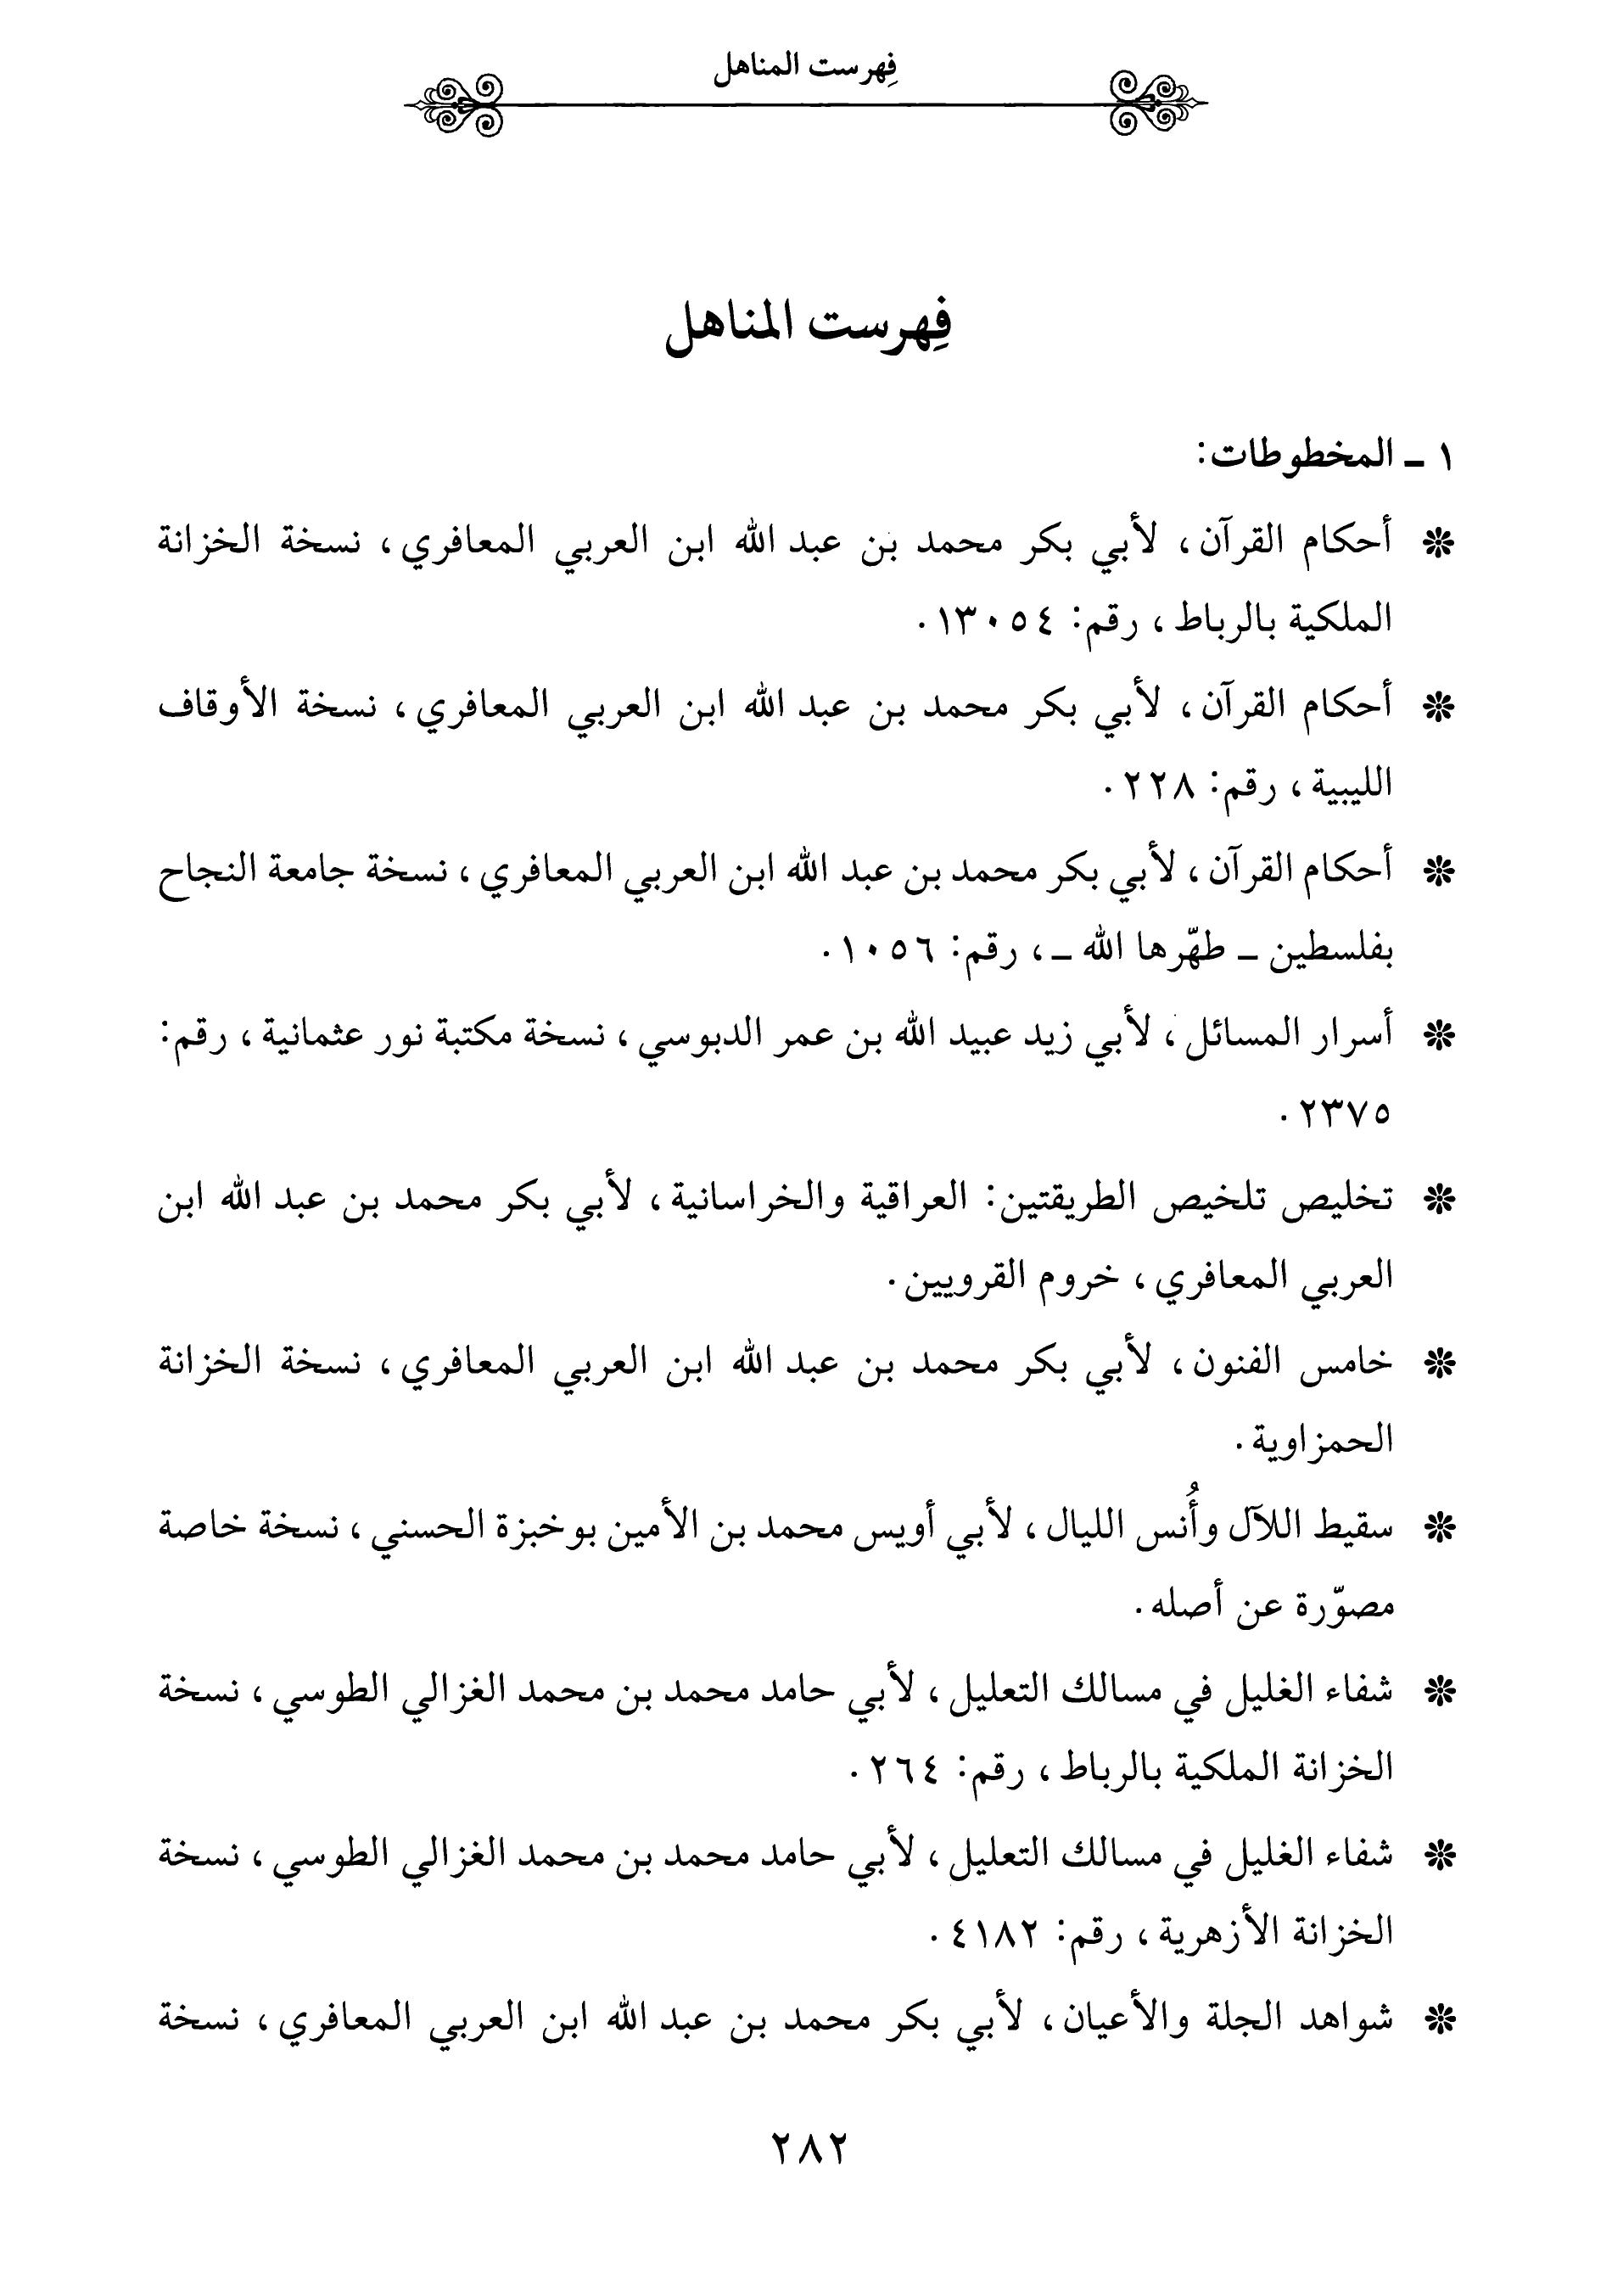 فِهرست المناهل
فِهرست المناهل
١ ـ المخطوطات:
❊ أحكام القرآن، لأبي بكر محمد بن عبد الله ابن العربي المعافري، نسخة الخزانة
الملكية بالرباط، رقم: ١٣٠٥٤.
❊ أحكام القرآن، لأبي بكر محمد بن عبد الله ابن العربي المعافري، نسخة الأوقاف
الليبية، رقم: ٢٢٨.
❊ أحكام القرآن، لأبي بكر محمد بن عبد الله ابن العربي المعافري، نسخة جامعة النجاح
بفلسطين ـ طهّرها الله ـ، رقم: ١٠٥٦.
❊ أسرار المسائل، لأبي زيد عبيد الله بن عمر الدبوسي، نسخة مكتبة نور عثمانية، رقم:
٢٣٧٥.
❊ تخليص تلخيص الطريقتين: العراقية والخراسانية، لأبي بكر محمد بن عبد الله ابن
العربي المعافري، خروم القرويين.
❊ خامس الفنون، لأبي بكر محمد بن عبد الله ابن العربي المعافري، نسخة الخزانة
الحمزاوية.
❊ سقيط اللآل وأُنس الليال، لأبي أويس محمد بن الأمين بوخبزة الحسني، نسخة خاصة
مصوّرة عن أصله.
❊ شفاء الغليل في مسالك التعليل، لأبي حامد محمد بن محمد الغزالي الطوسي، نسخة
الخزانة الملكية بالرباط، رقم: ٢٦٤.
❊ شفاء الغليل في مسالك التعليل، لأبي حامد محمد بن محمد الغزالي الطوسي، نسخة
الخزانة الأزهرية، رقم: ٤١٨٢.
❊ شواهد الجلة والأعيان، لأبي بكر محمد بن عبد الله ابن العربي المعافري، نسخة
٢٨٢